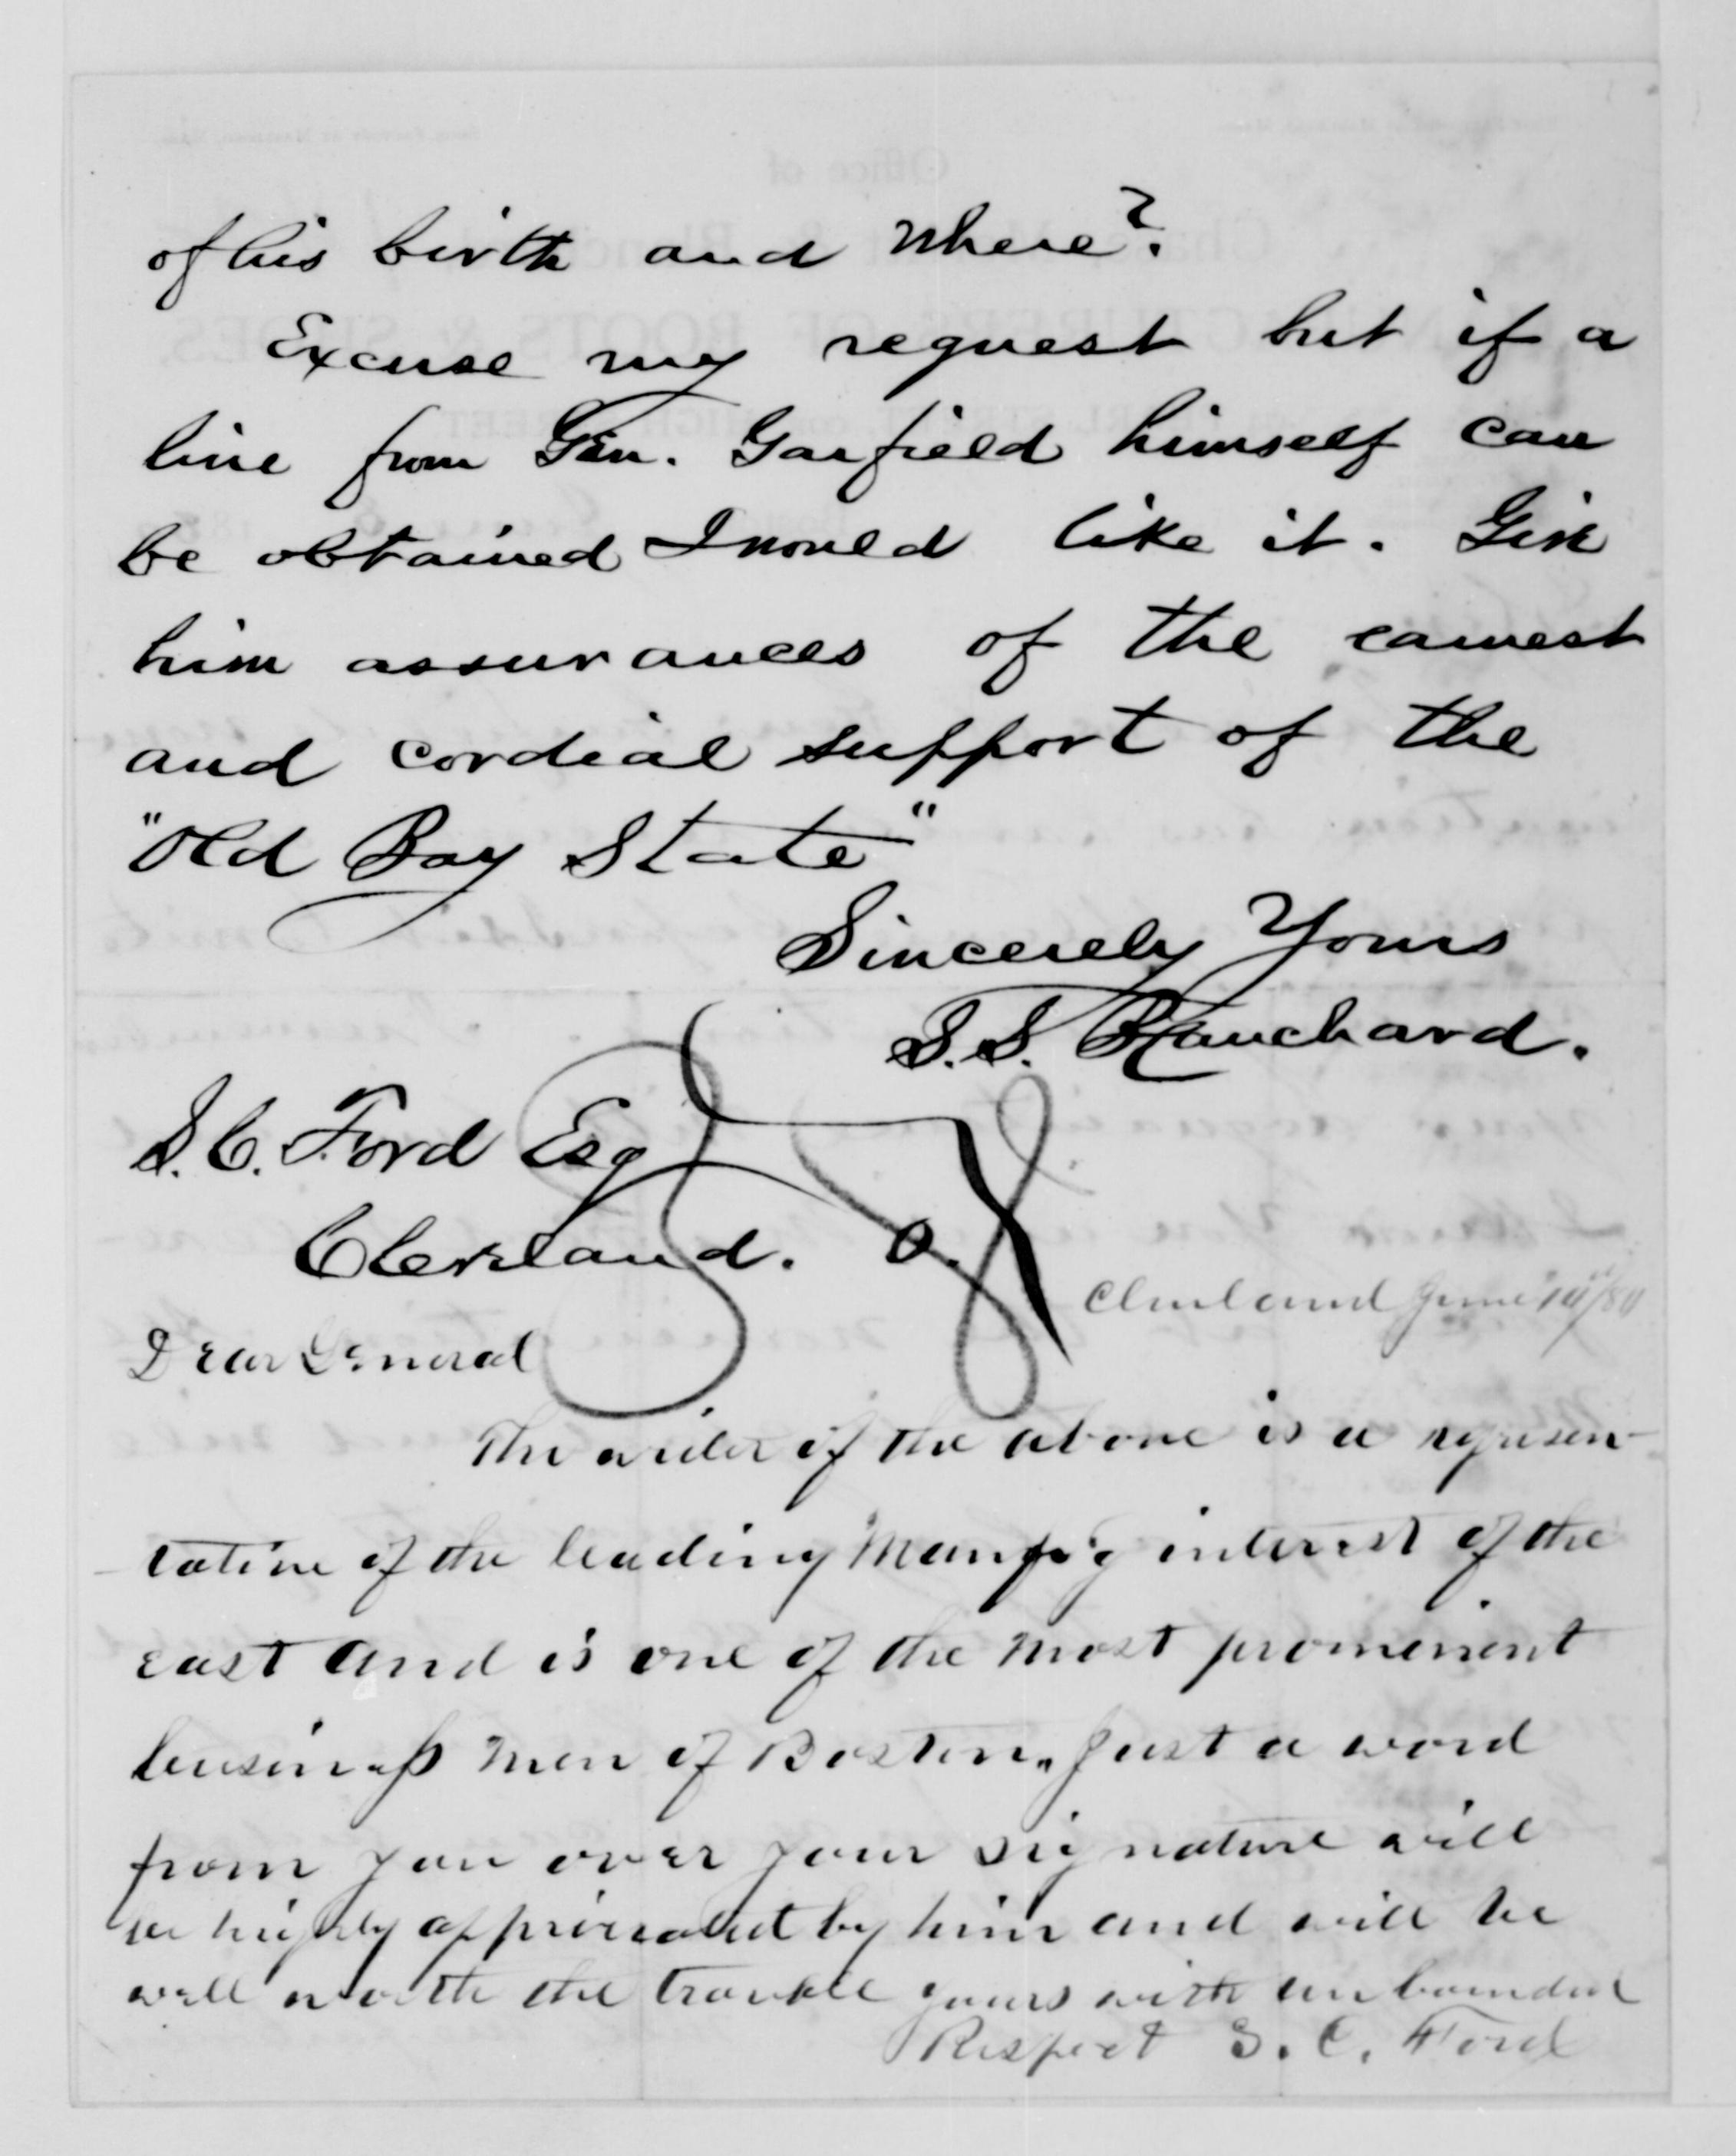 of his birth and where?
Excuse my request but if a
line from Gen. Garfield himself can
be obtained I would like it. Give
him assurances of the earnest
and cordial support of the
"Old Bay State"
Sincerely Yours
S. S. Blanchard.
S. C. Ford Esq
Cleveland. O.
Cleveland June 14/80
Dear General
The writer of the above is a represen-
tative of the leading Manfg interest of the
east and is one of the most prominent
business men of Boston. Just a word
from you over your signature will
be highly appreciated by him and will be
well worth the trouble yours with unbounded
Respect S. C. Ford